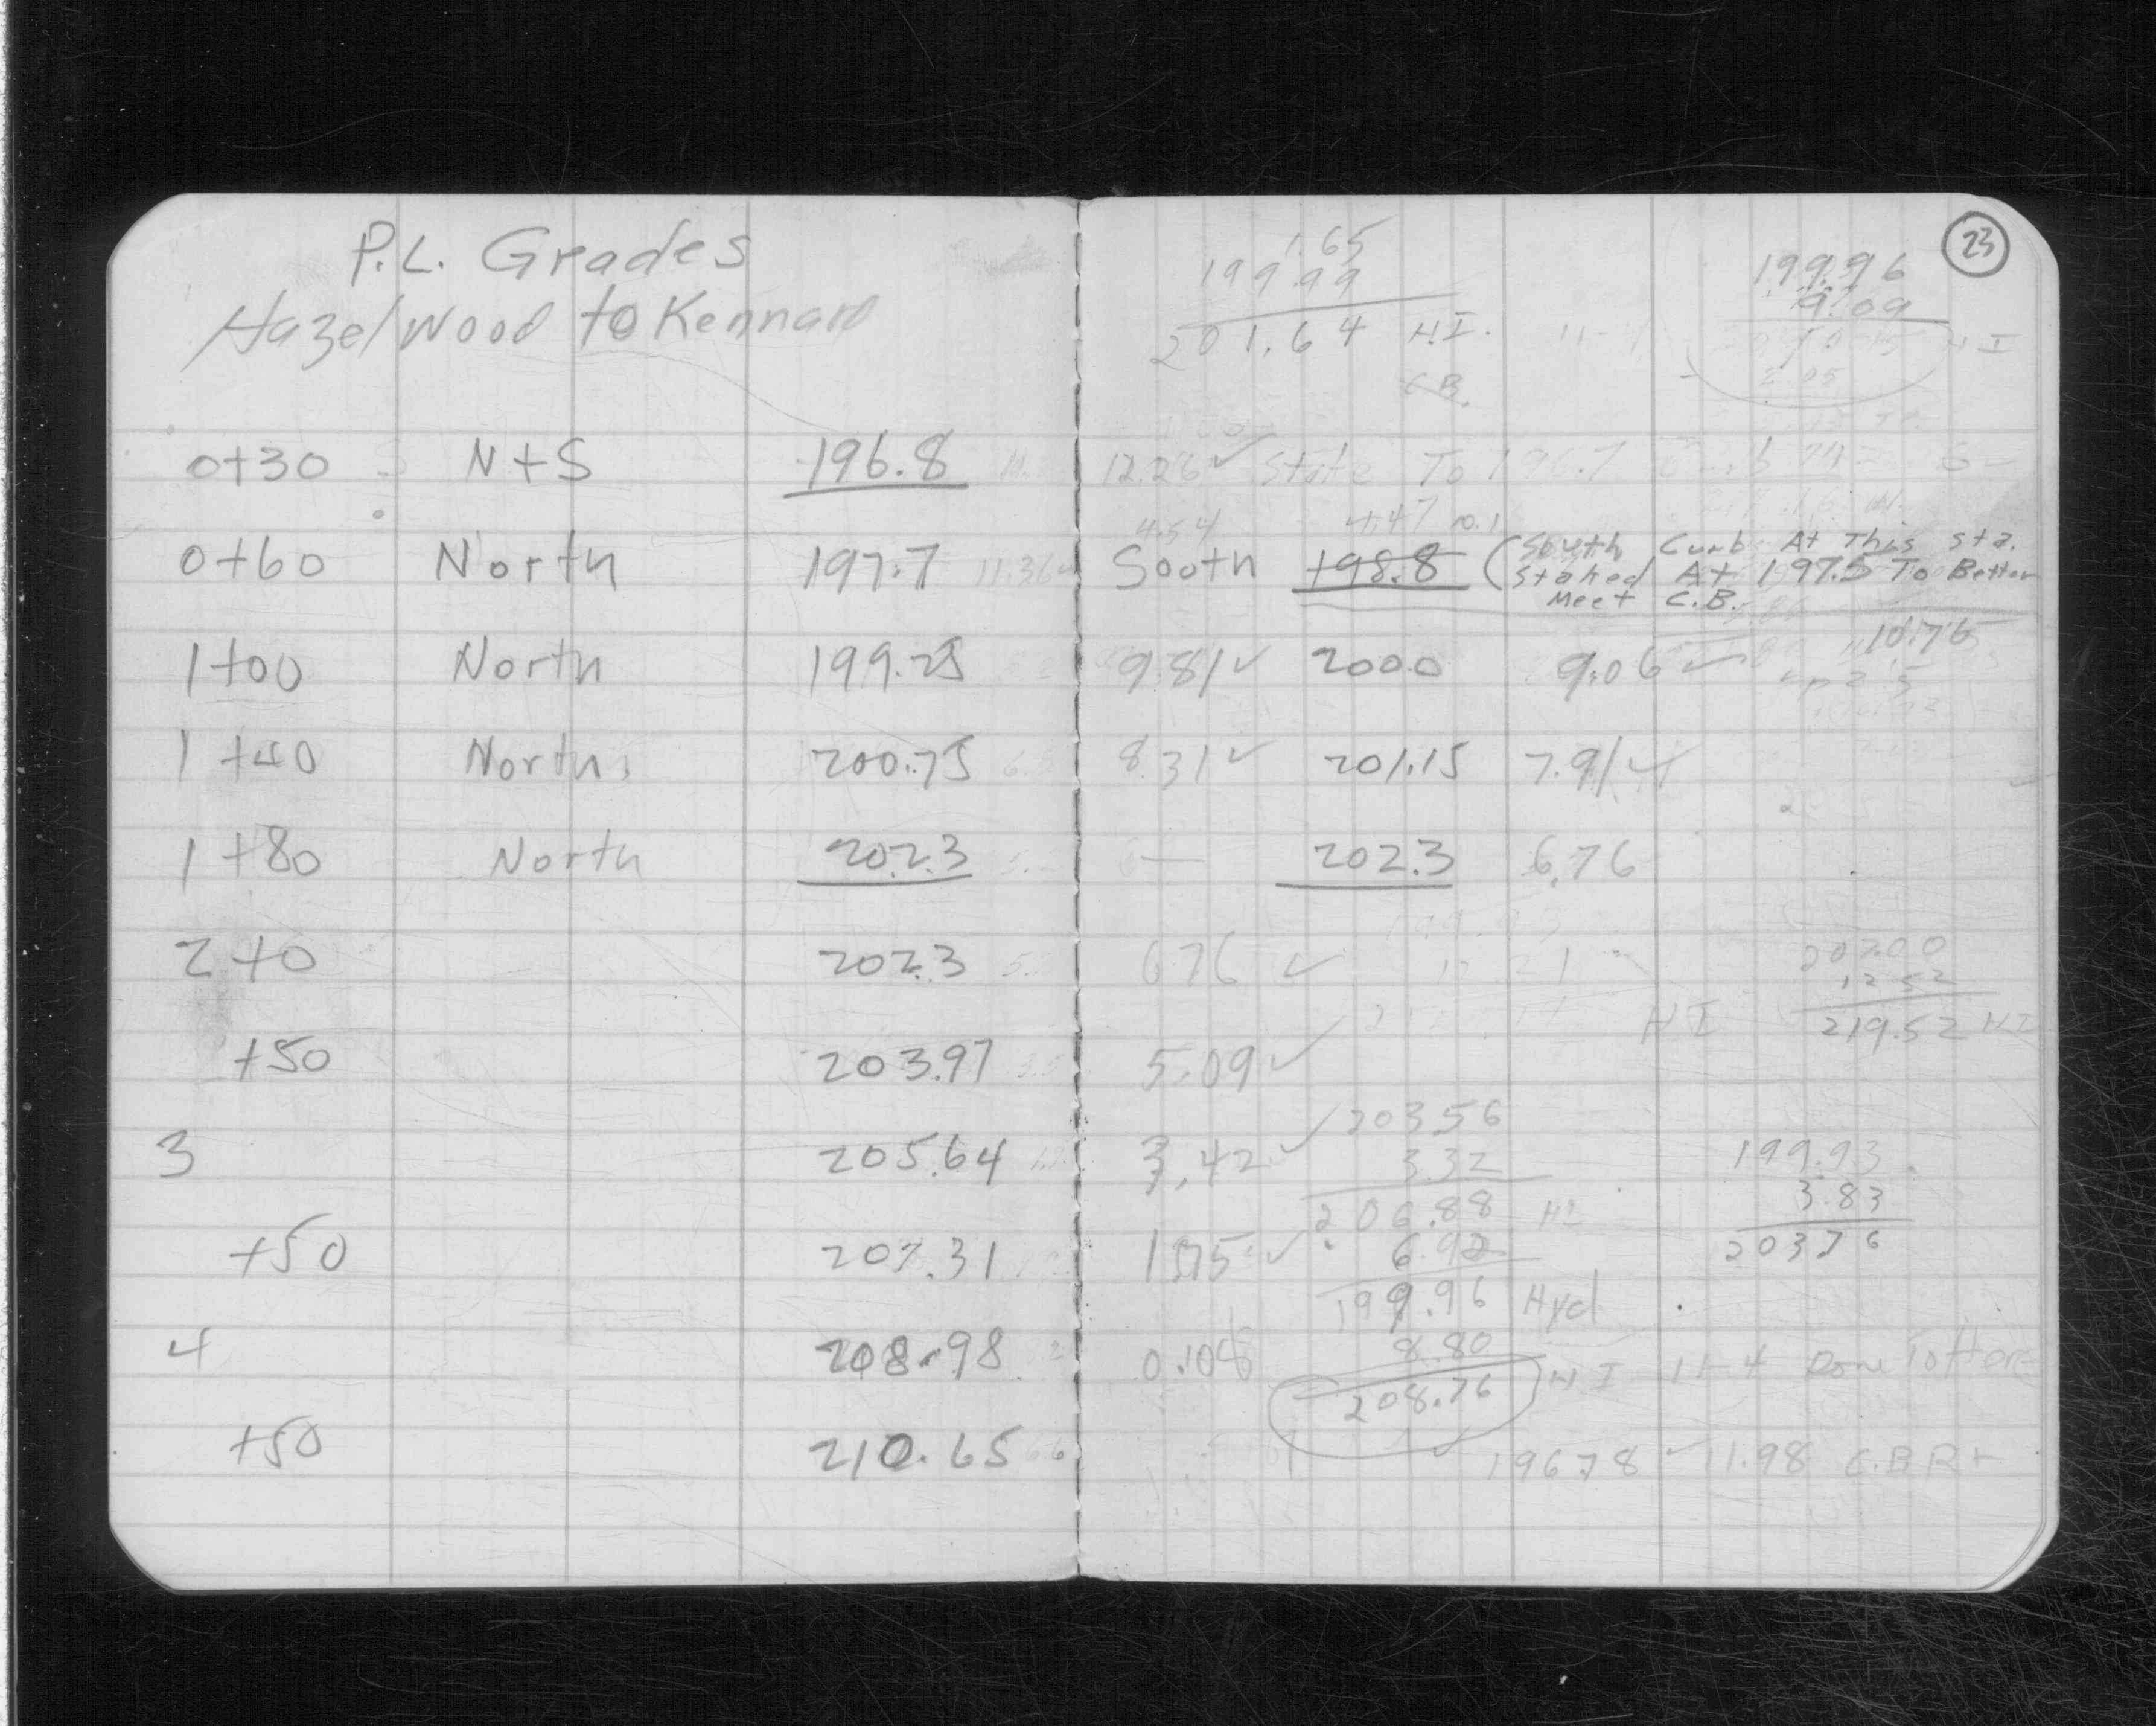 P.L. Grades
Hazelwood to Kennard
0+30 N+S 196.8
0+60 North 197.7 11.36
1+00 North 199.25
1+40 North 200.75
1+80 North 202.3
2+0 202.3
+50 203.97
3 205.64
+50 207.31
4 208.98
+50 210.65
23
1.65
199.99
201.64 H.I.
C.B.
199.96
9.09
H I
12.26 ✓ State To 196.7
4.54 4.47 10.1
South 198.8 (South Curb At This Sta.
Staked At 197.5 To Better
Meet C.B.
10.76
9.81 ✓ 200.0 9.06 ✓
8.31 ✓ 201.15 7.91 ✓
— 202.3 6.76
6.76 ✓
207.00
12.52
H I 219.52 H I
5.09 ✓
203.56
3.42 ✓ 3.32
206.88 HI
1.75 ✓ 6.92
199.96 Hyd
0.108 8.80
208.76 H I 11-4
199.93
3.83
203.76
196.78 ✓ 11.98 C.B R+